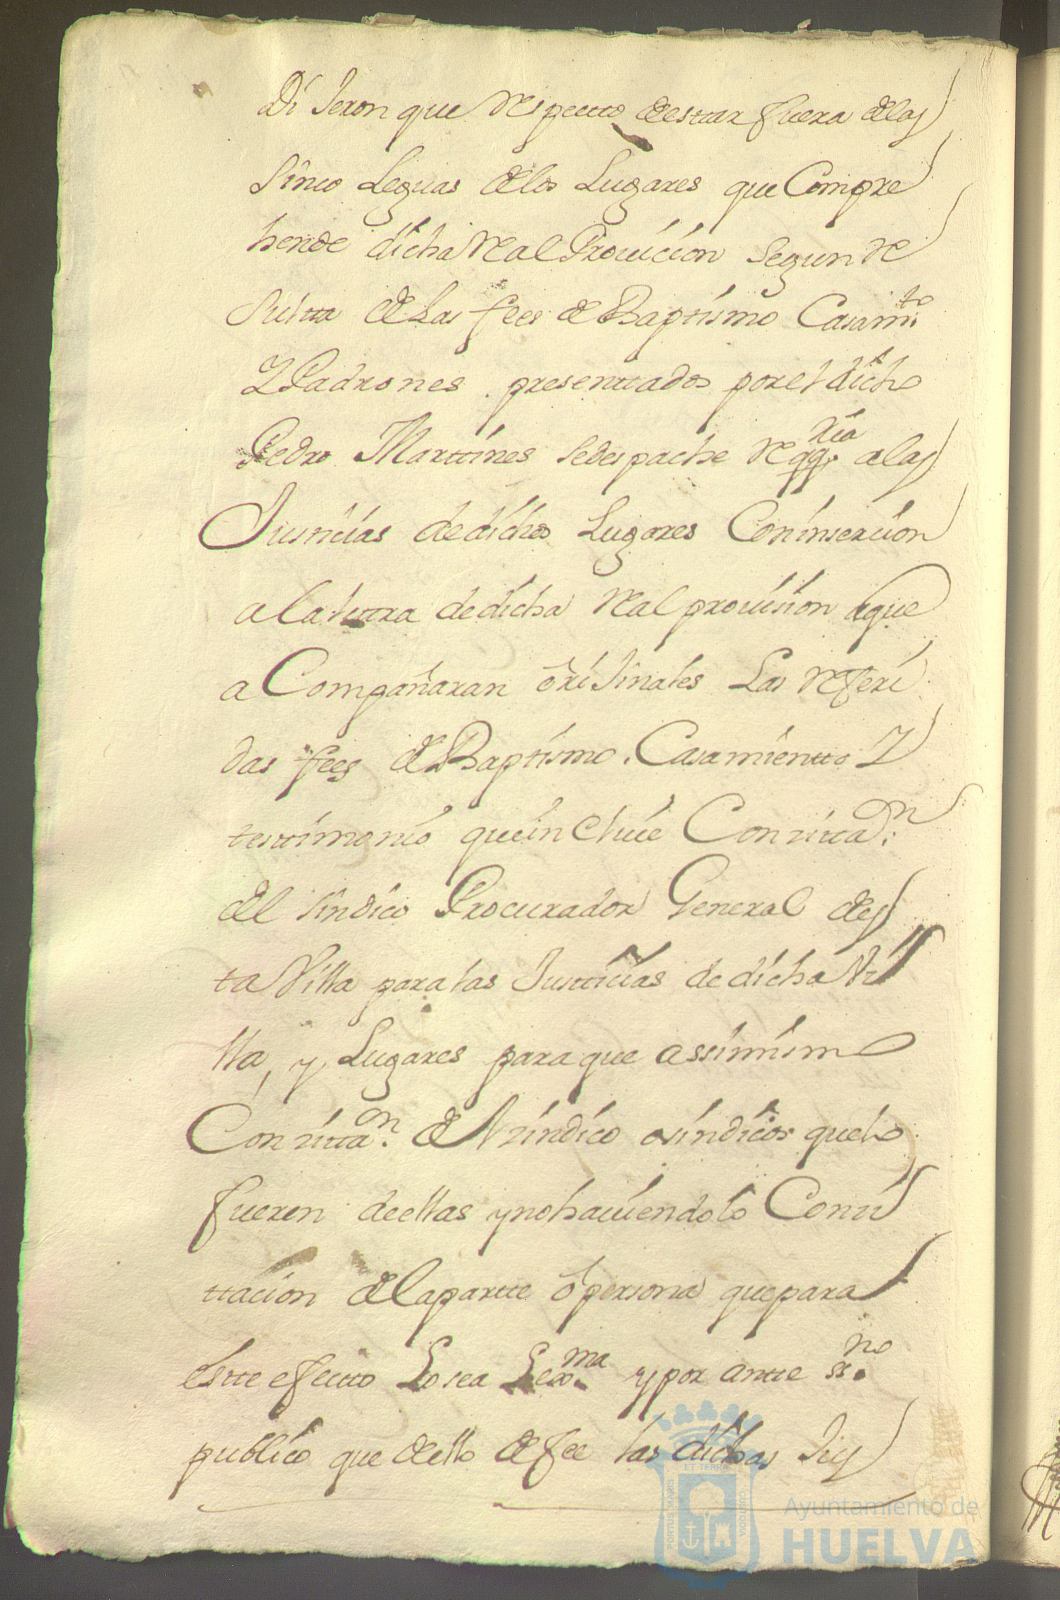 Dijeron que respecto de estar fuera delas
sinco Leguas delos Lugares que Compre
hende dicha Real Provicion segun Re
sulta de Las fees de Baptismo Casam.to
Y Padrones presenttados por el dicho
Pedro Marttines se despache Reqq.rio alas
Justicias de dichos Lugares Con insercion
ala letra de dicha Real provision aque
aCompañaran orijinales Las Referi
das fees de Baptismo, Casamientto Y
testtimonio que incluie Con zitta.on
del sindico Procurador General des
ta Villa para las Justticias de dicha Vi
lla, y Lugares para que assimismo
Con zitta.on del sindico o sindicos que lo
fueren de ellas y no haciendolo Con zi
ttacion dela partte o persona que para
estte efectto Lo sea Lex.ma y por antte ss.no
publico que dello de fee las dichas Jus
Ayuntamiento de
HUELVA